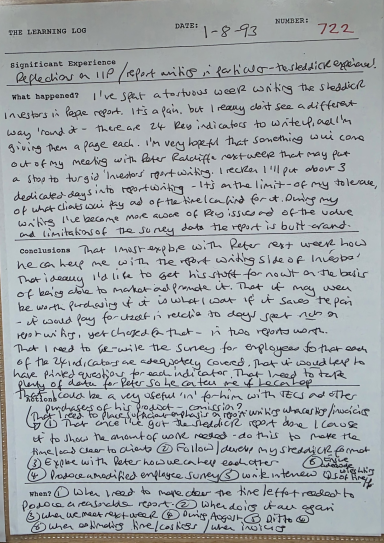 THE LEARNING LOG DATE: 1-8-93 NUMBER: 722
Significant Experience
Reflections on IIP / report writing in particular - the Sheddick experience!
What happened? I've spent a tortuous week writing the Sheddick
Investors in People report. It's a pain, but I really don't see a different
way 'round it - there are 24 key indicators to write up, and I'm
giving them a page each. I'm very hopeful that something will come
out of my meeting with Peter Radcliffe next week that may put
a stop to turgid 'Investors' report writing. I reckon I'll put about 3
dedicated days into report writing - It's at the limit - of my tolerance,
of what clients will pay and of the time I can find for it. During my
writing I've become more aware of key issues and of the value
and limitations of the survey data the report is built around.
Conclusions That I must explore with Peter next week how
he can help me with the report writing side of Investors'
That ideally I'd like to get his stuff for nowt on the basis
of being able to market and promote it. That it may well
be worth purchasing if it is what I want if it saves the pain
- it would pay for itself in relation to days spent not on
report writing, yet charged for that - in two reports worth.
That I need to re-write the survey for employees so that each
of the 24 indicators are adequately covered. That it would help to
have linked questions for each indicator. That I need to take
plenty of data for Peter so he can tell me if he can help
That I could be a very useful 'in' for him with TECs and other
purchasers of his product - commission?
Actions (That I need to place factual emphasis on report writing when costing/invoicing
① That once I've got the Sheddick report done I can use
it to show the amount of work needed - do this to make the
time/cost clear to clients ② Follow/develop my Sheddick format
③ Explore with Peter how we can help each other
④ Produce a modified employee survey ⑤ write interview
When? ① When I need to make clear the time/effort needed to
produce a reasonable report. ② When doing it all again
③ When we meet next week ④ During August ⑤ Ditto
⑥ When estimating time/costings / when invoicing